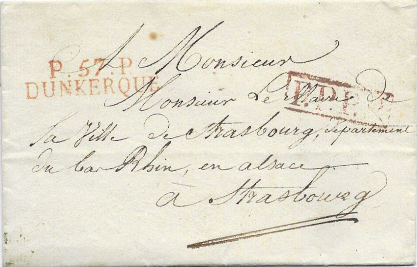 A Monsieur
P. 57. P.
DUNKERQUE
P.P.P.P.
Monsieur Le Maire de
la Ville de Strasbourg, departement
du bas Rhin, en alsace
à Strasbourg